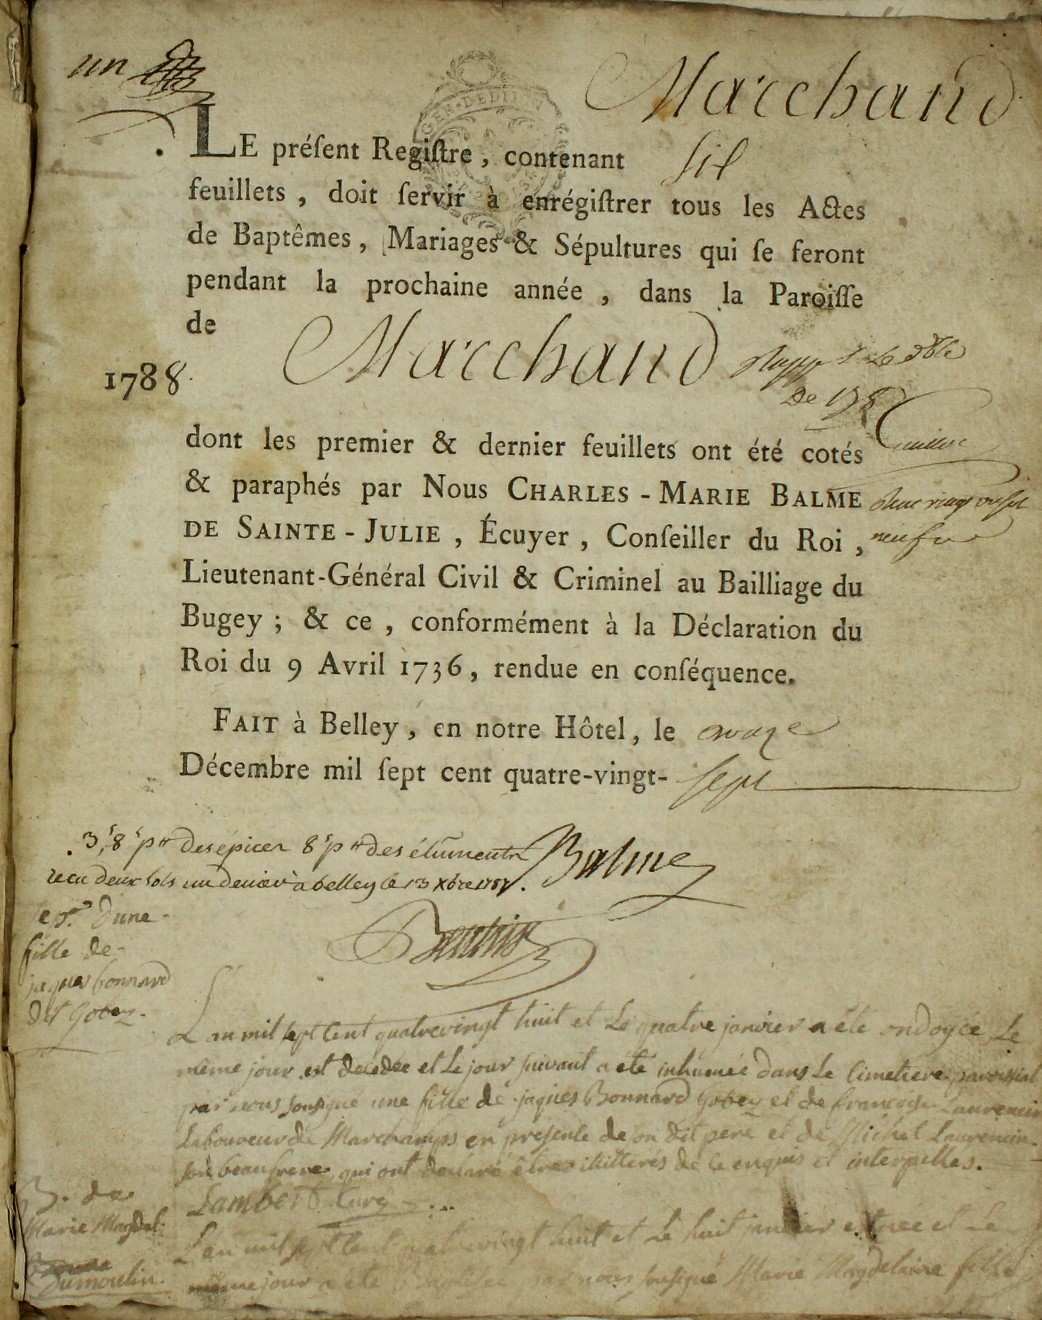 un
Marchand
LE préſent Regiſtre, contenant six
feuillets, doit ſervir à enrégiſtrer tous les Actes
de Baptêmes, Mariages & Sépultures qui ſe feront
pendant la prochaine année, dans la Paroiſſe
de Marchand
1788
de 178
dont les premier & dernier feuillets ont été cotés
& paraphés par Nous CHARLES-MARIE BALME
DE SAINTE-JULIE, Écuyer, Conſeiller du Roi,
Lieutenant-Général Civil & Criminel au Bailliage du
Bugey; & ce, conformément à la Déclaration du
Roi du 9 Avril 1736, rendue en conſéquence.
FAIT à Belley, en notre Hôtel, le onze
Décembre mil ſept cent quatre-vingt-sept
Balme
recu deux sols un denier à belley le 13 Xbre 1787.
d'une
fille de
jaques bonnard
dit Gobey
L'an mil sept cent quatrevingt huit et le quatre janvier a été ondoyée le
même jour est decedée et le jour suivant a été inhumée dans le cimetiere paroissial
par nous soussigné une fille de jaques Bonnard Gobey et de francoise Laurencin
Laboureur de Marchamps en présence de son dit pere et de Michel Laurencin
son beaufrere qui ont declaré être illitterés de ce enquis et interpellés.
Lambert Curé
B. de
Marie Magdel.
Dumoulin
L'an mil sept cent quatrevingt huit et le huit janvier est née et le
même jour a été par nous soussigné Marie Magdelaine fille